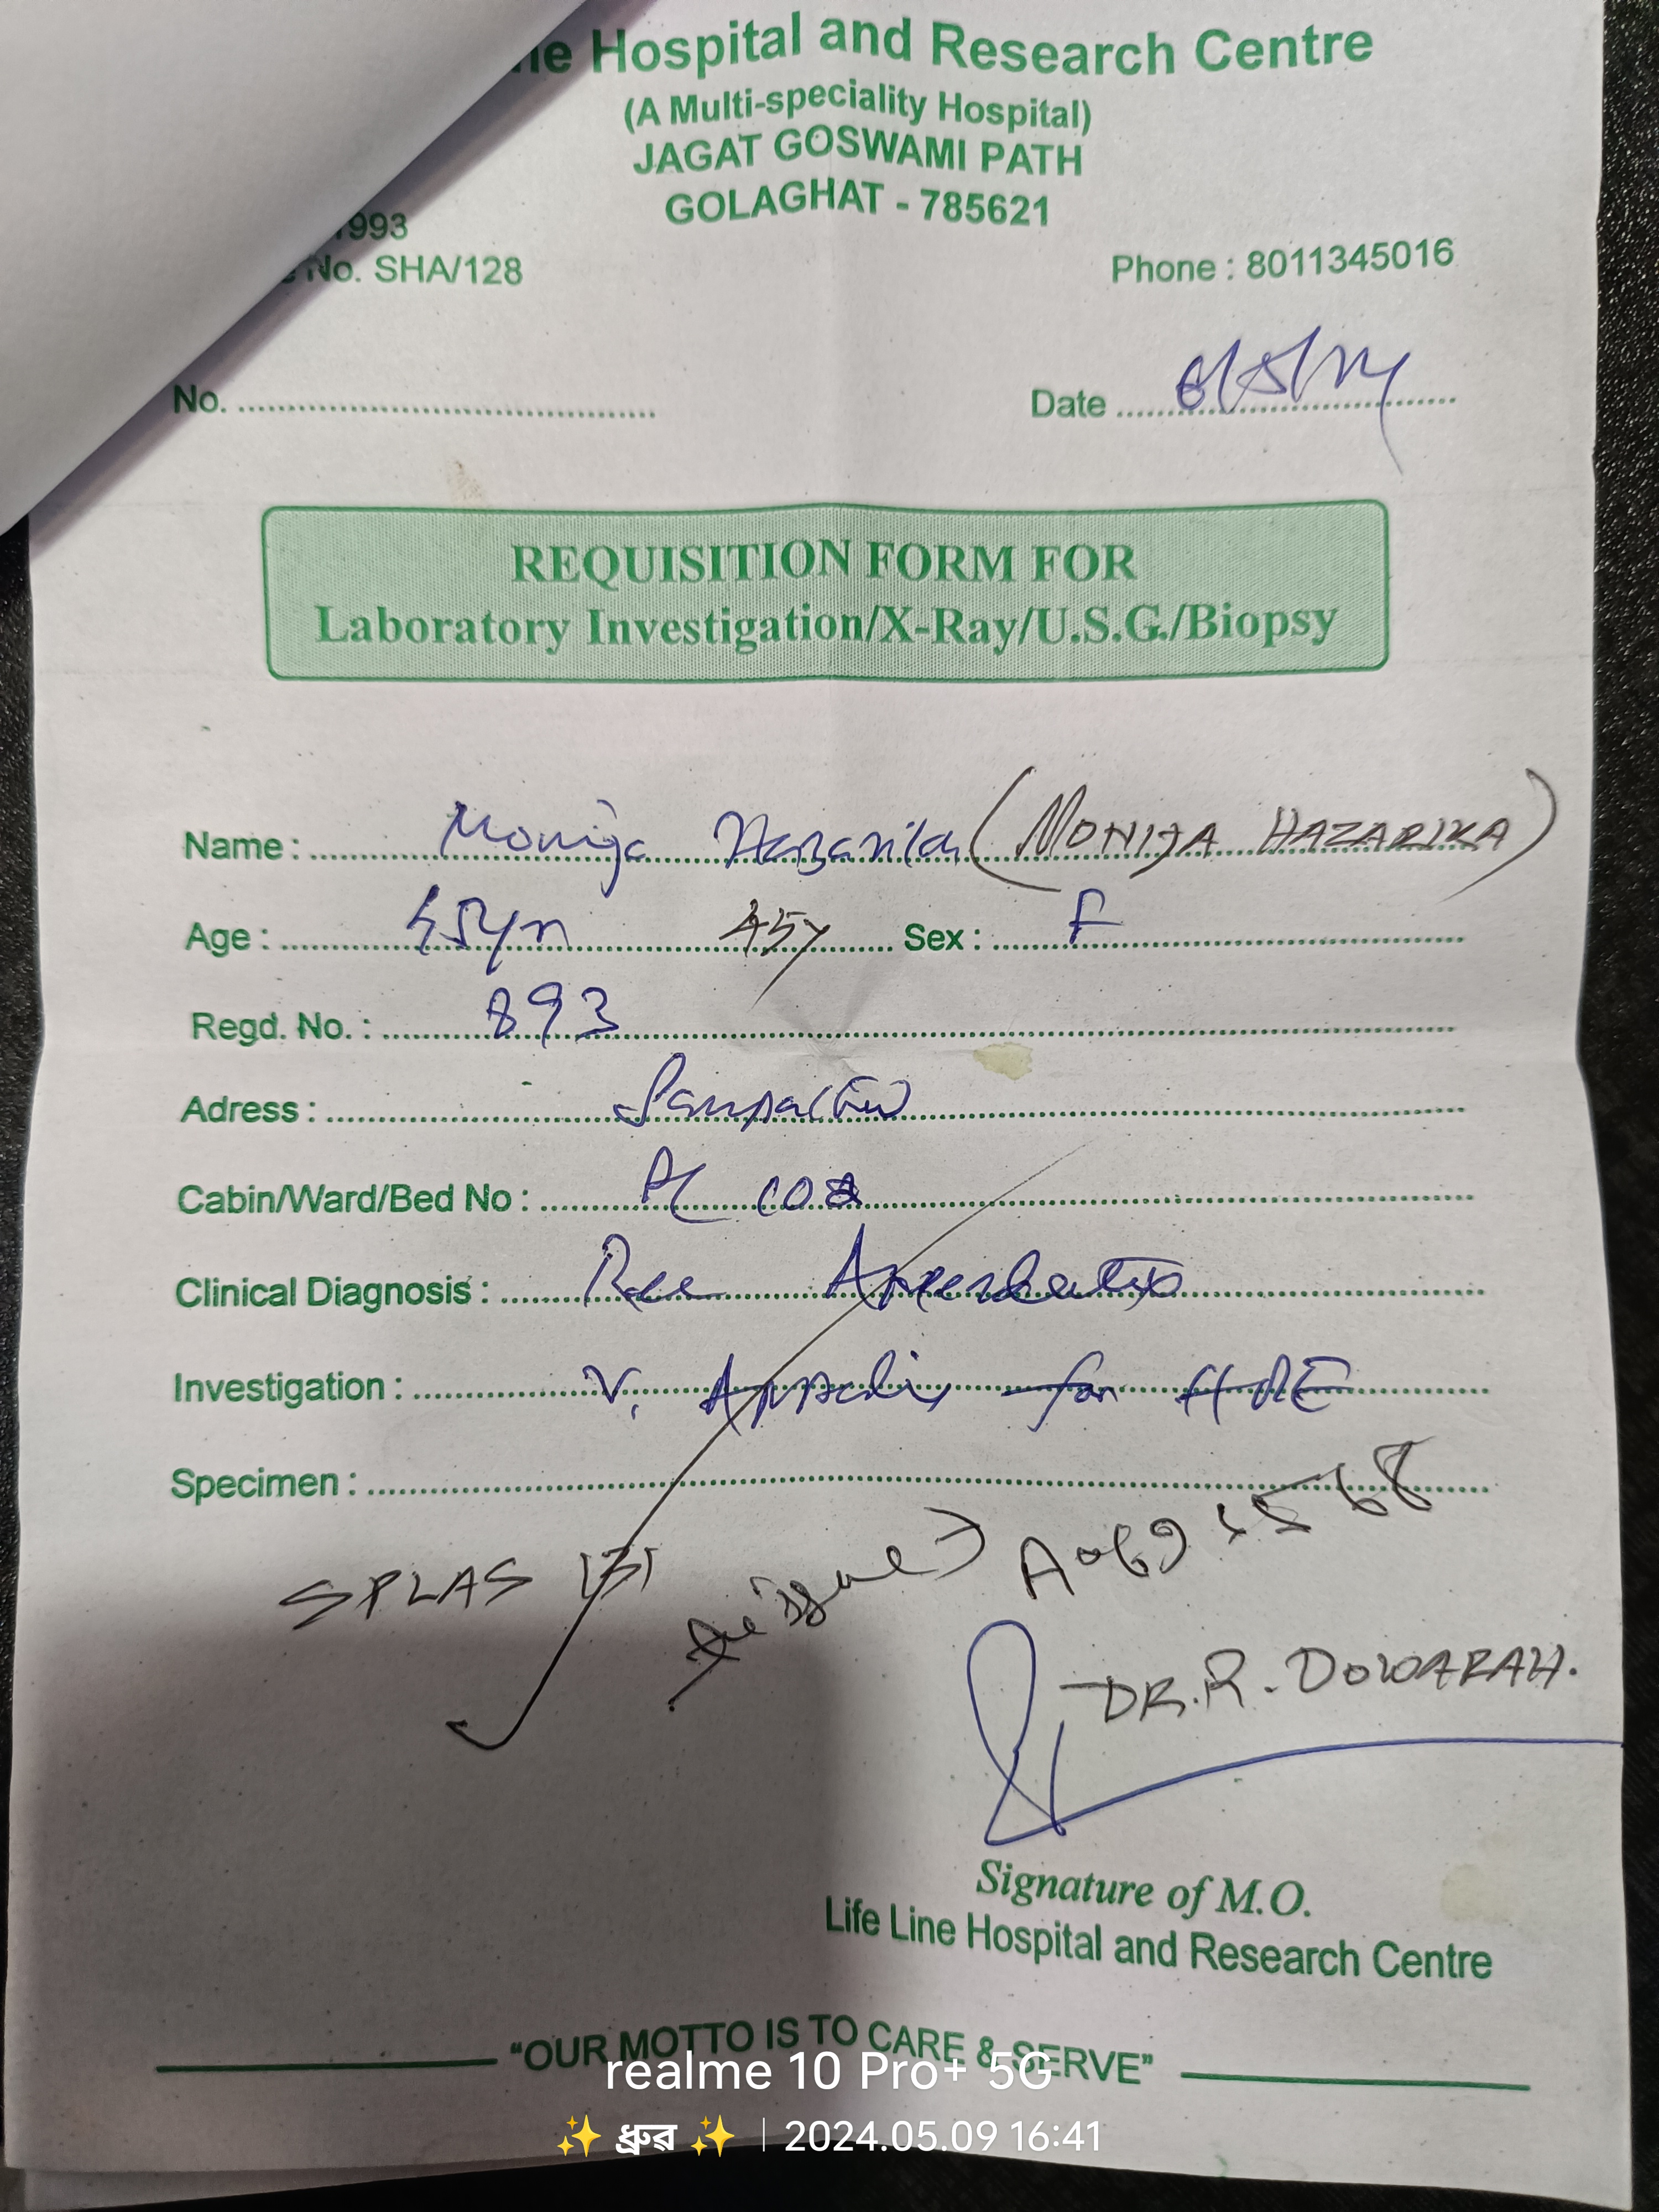 ne Hospital and Research Centre
(A Multi-speciality Hospital)
JAGAT GOSWAMI PATH
GOLAGHAT - 785621
1993
No. SHA/128
Phone : 8011345016
No.
Date
REQUISITION FORM FOR
Laboratory Investigation/X-Ray/U.S.G./Biopsy
Name : Monija Hazarika (MONIJA HAZARIKA)
Age : 45yrs 45y Sex : F
Regd. No. : 893
Adress :
Cabin/Ward/Bed No :
Clinical Diagnosis : Rec Appendicitis
Investigation : for HPE
Specimen :
A069 68
SPLAS
DR. R. DOWARAH.
Signature of M.O.
Life Line Hospital and Research Centre
“OUR MOTTO IS TO CARE & SERVE”
realme 10 Pro+ 5G
✨ ধ্ৰুৱ ✨ | 2024.05.09 16:41